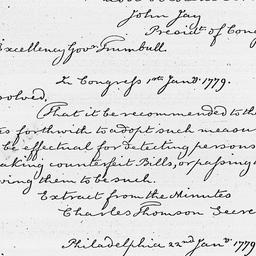 John Jay
Presidt. of Cong
Excellency Govr. Trumbull
In Congress 1st. Jany. 1779.
solved,
That it be recommended to the
es forthwith to adopt such measur
be effectual for detecting persons
aking counterfeit Bills, or passing
wing them to be such.
Extract from the Minutes
Charles Thomson Secre
Philadelphia 22nd Jany. 1779